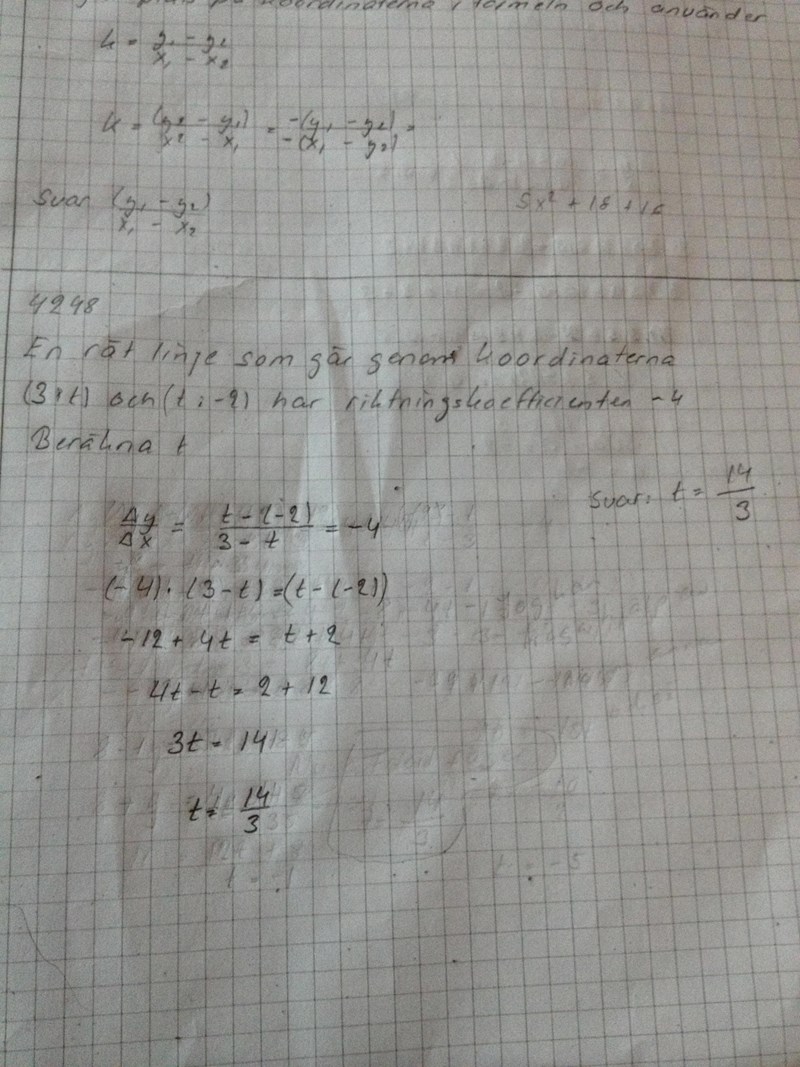 plats på koordinaterna i formeln och använder
k = y₁ - y₂ / x₁ - x₂
k = (y₂ - y₁) / x₂ - x₁ = -(y₁ - y₂) / -(x₁ - y₂) =
Svar (y₁ - y₂) / x₁ - x₂
5x² + 18 + 16
4248
En rät linje som går genom koordinaterna
(3; t) och (t; -2) har riktningskoefficienten -4
Beräkna t
Svar: t = 14/3
Δy/Δx = t - (-2) / 3 - t = -4
(-4) · (3 - t) = (t - (-2))
-12 + 4t = t + 2
4t - t = 2 + 12
3t = 14
t = 14/3